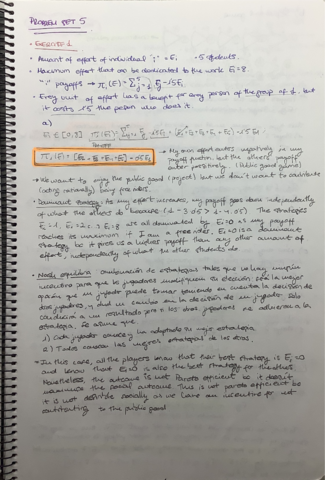 PROBLEM SET 5
EXERCISE 1
• Amount of effort of individual "i" = Ei . 5 students.
• Maximum effort that can be dedicated to the work Ei = 8
• Every unit of effort has a benefit for any person of the group of 1 but
it costs 1.5 the person who does it.
a)
My own effort enters negatively in my
payoff function but the others' payoff
enter positively (Public good game)
• We want to enjoy the public good (project) but we don't want to contribute
(acting rationally) being free riders.
• Dominant strategy: As my effort increases, my payoff goes down independently
of what the others do because
Ei = 1, Ei = 2 ... Ei = 8 are all dominated by Ei = 0 as my payoff
reaches its maximum if I am a free rider. Ei = 0 is a dominant
strategy bc it gives us a higher payoff than any other amount of
effort, independently of what the other students do
• Nash equilibria: combinación de estrategias tales que no hay ningún
incentivo para que los jugadores modifiquen su decisión. Es la mejor
opción que un jugador puede tomar teniendo en cuenta la decisión de
los jugadores, y que un cambio en la decisión de un jugador solo
conducirá a un resultado peor si los otros jugadores se adhieren a la
estrategia. Se asume que
1) Cada jugador conoce y ha adoptado su mejor estrategia
2) Todos conocen las mejores estrategias de los otros.
• In this case, all the players know that their best strategy is Ei = 0
and know that Ei = 0 is also the best strategy for the others.
Nonetheless, the outcome is not Pareto efficient bc it doesn't
maximize the social outcome. This is not pareto efficient bc
it is not desirable socially as we have an incentive for not
contributing to the public good